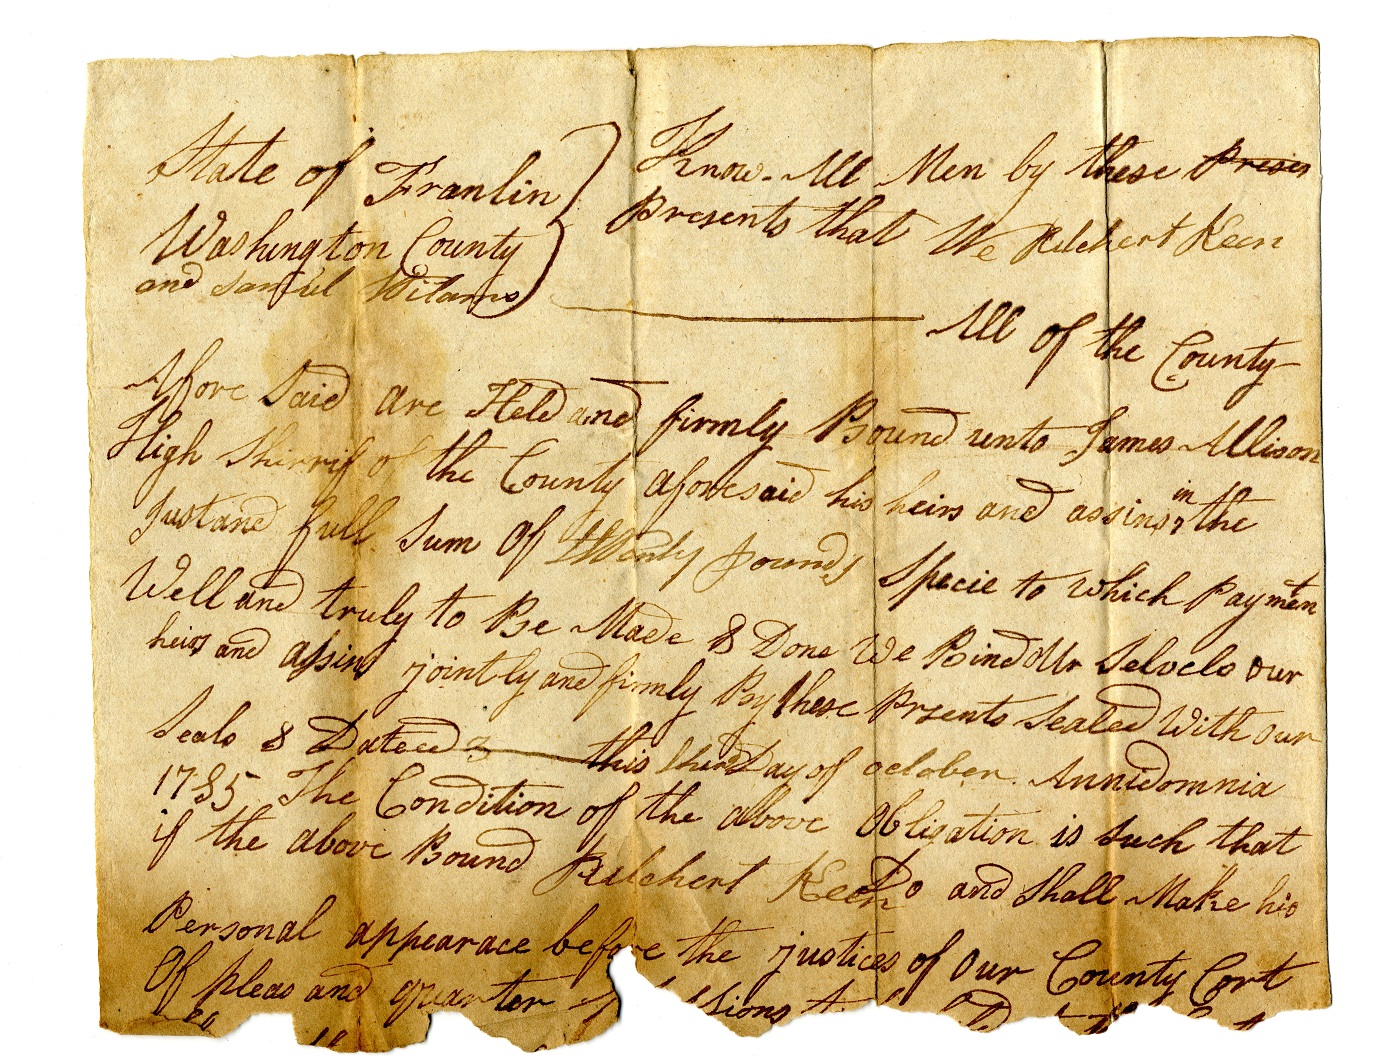 State of Franlin
Washington County
and Samuel Wilams
Know All Men by these Preses
Presents that We Relchert Keen
All of the County
Afore Said are Held and firmly Bound unto James Allison
High Shirrif of the County aforesaid his heirs and assins in the
Just and full Sum Of twenty pounds Specie to which Payment
Well and truly to Be Made & Done We Bind Our Selvels our
heirs and assins jointly and firmly By these Prsents Sealed With our
Seals & Dateed this third Day of october Annidomnia
1785 The Condition of the above Obligation is Such that
if the above Bound Relchert Keen Do and Shall Make his
Personal appearace before the justices of our County Cort
Of pleas and quarter